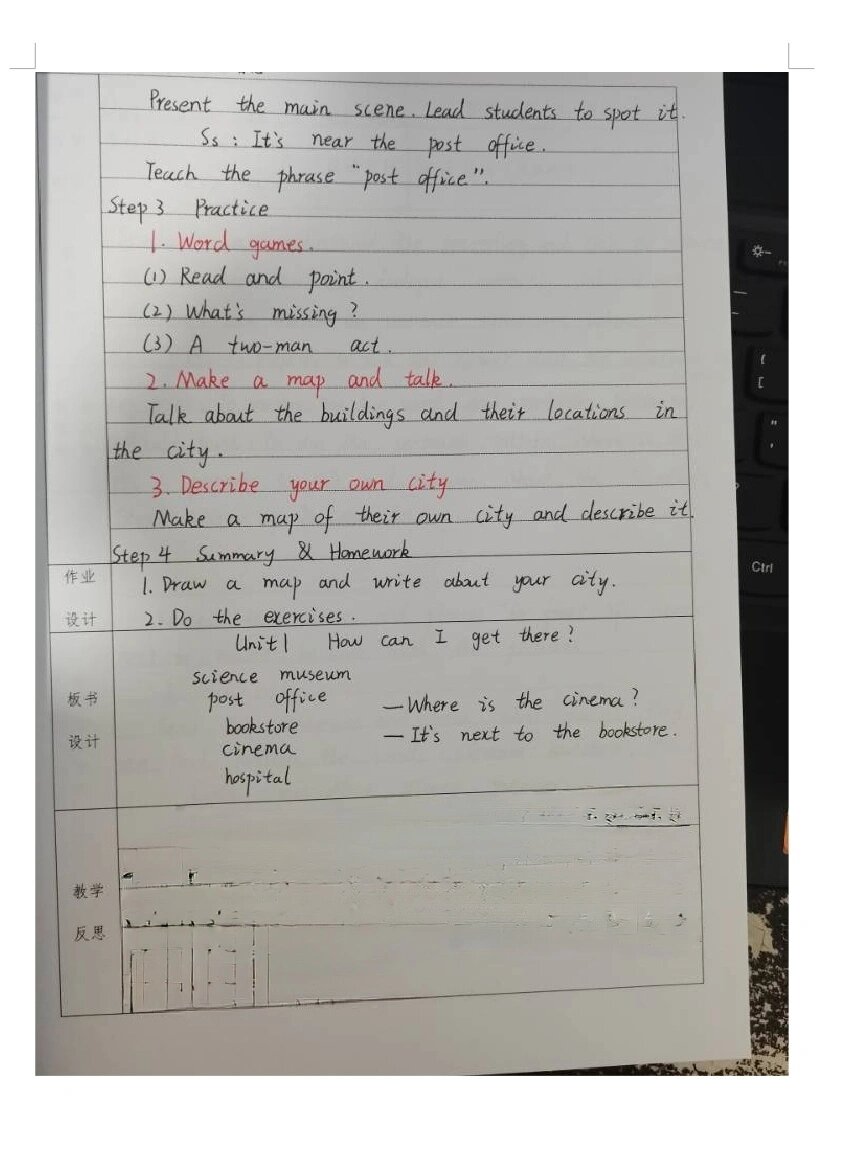 Present the main scene. Lead students to spot it.
Ss : It's near the post office.
Teach the phrase "post office".
Step 3 Practice
1. Word games.
(1) Read and point.
(2) What's missing ?
(3) A two-man act.
2. Make a map and talk.
Talk about the buildings and their locations in
the city.
3. Describe your own city
Make a map of their own city and describe it.
Step 4 Summary & Homework
作业
设计
1. Draw a map and write about your city.
2. Do the exercises.
板书
设计
Unit 1 How can I get there?
science museum
post office
bookstore
cinema
hospital
—Where is the cinema?
—It's next to the bookstore.
教学
反思
Ctrl